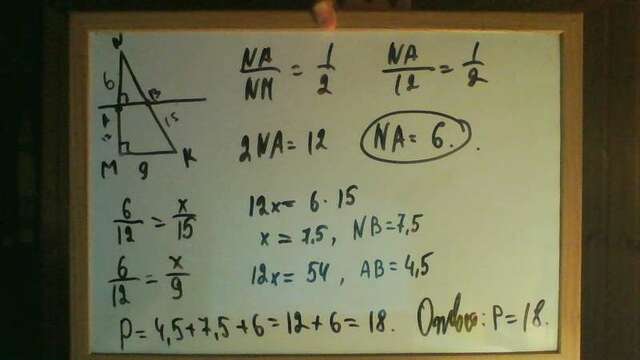 N
NA/NM = 1/2
NA/12 = 1/2
6
B
A
15
M
9
K
2NA = 12
NA = 6.
6/12 = x/15
12x = 6 · 15
x = 7,5, NB = 7,5
6/12 = x/9
12x = 54, AB = 4,5
P = 4,5 + 7,5 + 6 = 12 + 6 = 18.
Ответ: P = 18.